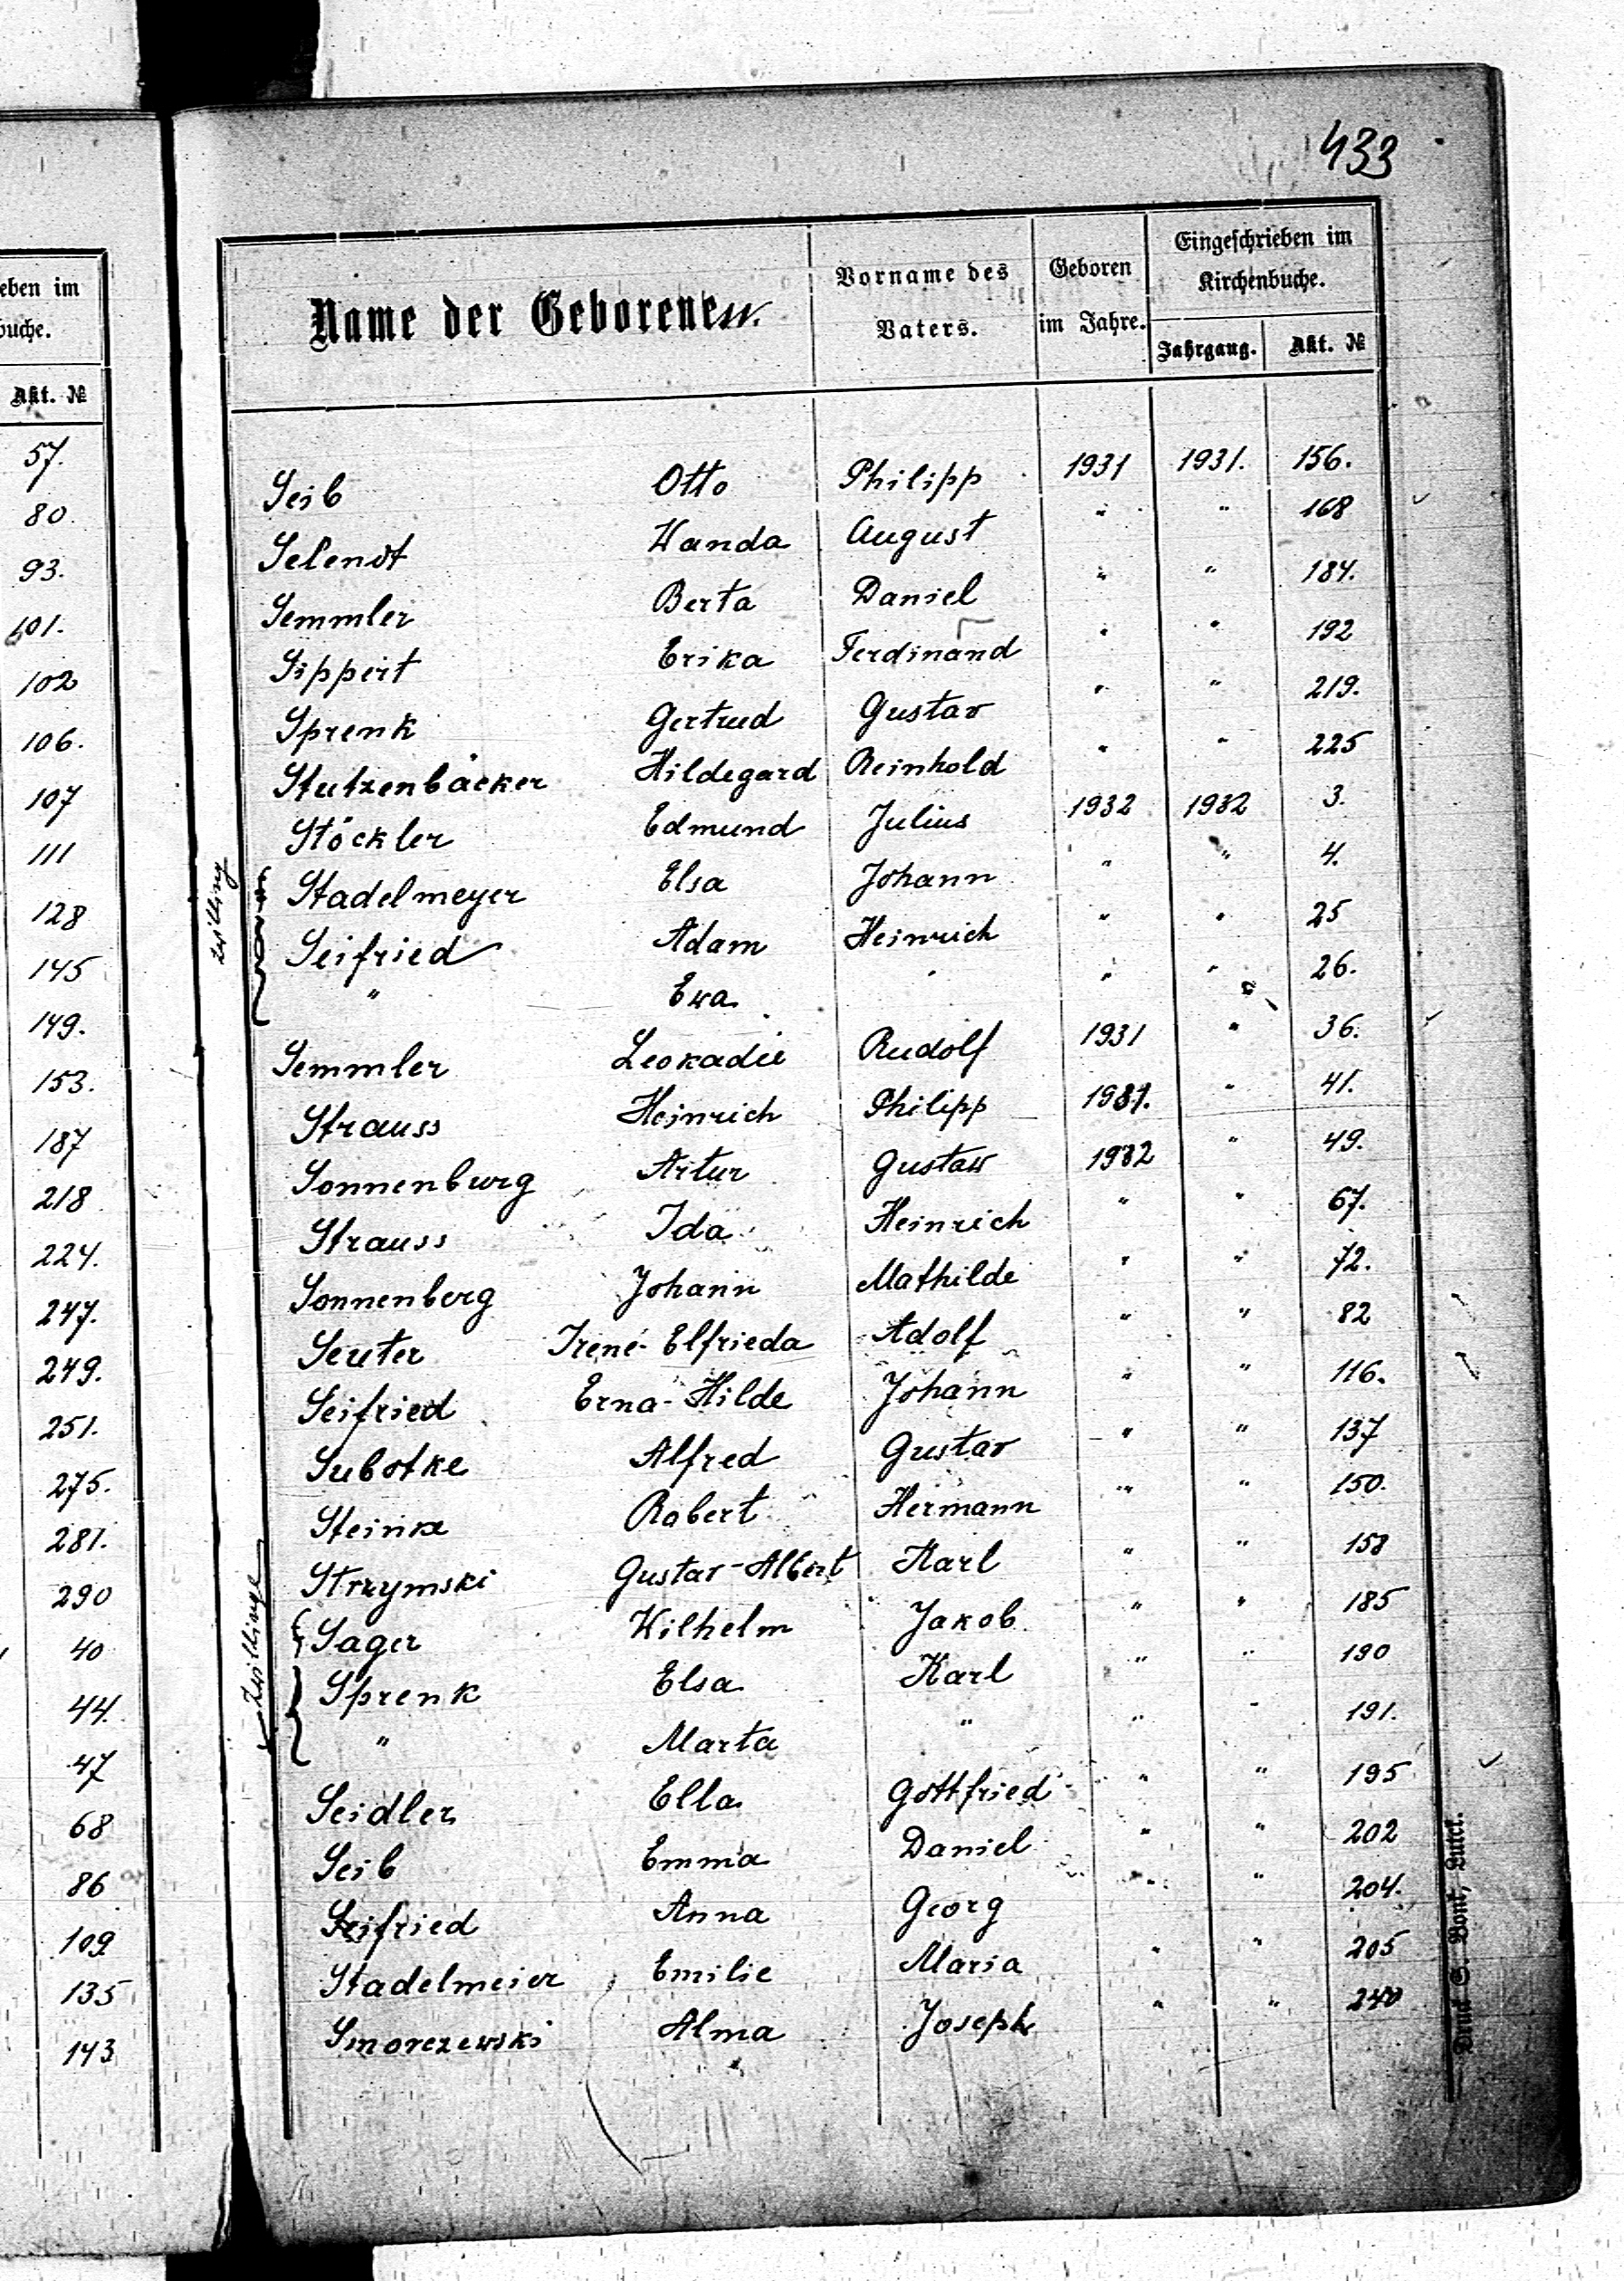 eben im
buche.
Akt. №
57.
80.
93.
101.
102
106.
107
111
128
145
149.
153.
187
218
224.
247.
249.
251.
275.
281.
290
40
44.
47
68
86
109
135
143
433
Name der Geborenen.
Vorname des Vaters.
Geboren im Jahre.
Eingeschrieben im Kirchenbuche.
Jahrgang. Akt. №
Seib Otto Philipp 1931 1931. 156.
Selendt Wanda August " " 168
Semmler Berta Daniel " " 184.
Sippert Erika Ferdinand " " 192
Sprenk Gertrud Gustav " " 219.
Stutzenbäcker Hildegard Reinhold " " 225
Stöckler Edmund Julius 1932 1932 3.
Stadelmeyer Elsa Johann " " 4.
Seifried Adam Heinrich " " 25
" Ewa " " " 26.
Semmler Leokadie Rudolf 1931 " 36.
Strauss Heinrich Philipp 1931. " 41.
Sonnenburg Artur Gustaw 1932 " 49.
Strauss Ida Heinrich " " 67.
Sonnenberg Johann Mathilde " " 72.
Seuter Irene-Elfrieda Adolf " " 82
Seifried Erna-Hilde Johann " " 116.
Subotke Alfred Gustav " " 137
Steinke Robert Hermann " " 150.
Strzymski Gustav-Albert Karl " " 158
Sager Wilhelm Jakob " " 185
Sprenk Elsa Karl " " 190
" Marta " " " 191.
Seidler Ella Gottfried " " 195
Seib Emma Daniel " " 202
Seifried Anna Georg " " 204.
Stadelmeier Emilie Maria " " 205
Smorczewski Alma Joseph " " 240
Zwilling
Zwillinge
Druck S. Bont, Luzk.